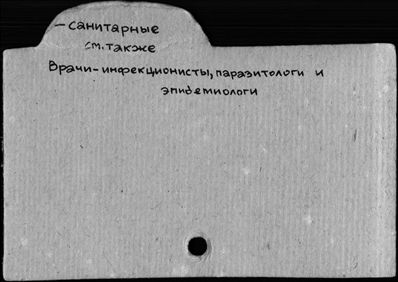 — санитарные
см. также
Врачи-инфекционисты, паразитологи и
эпидемиологи